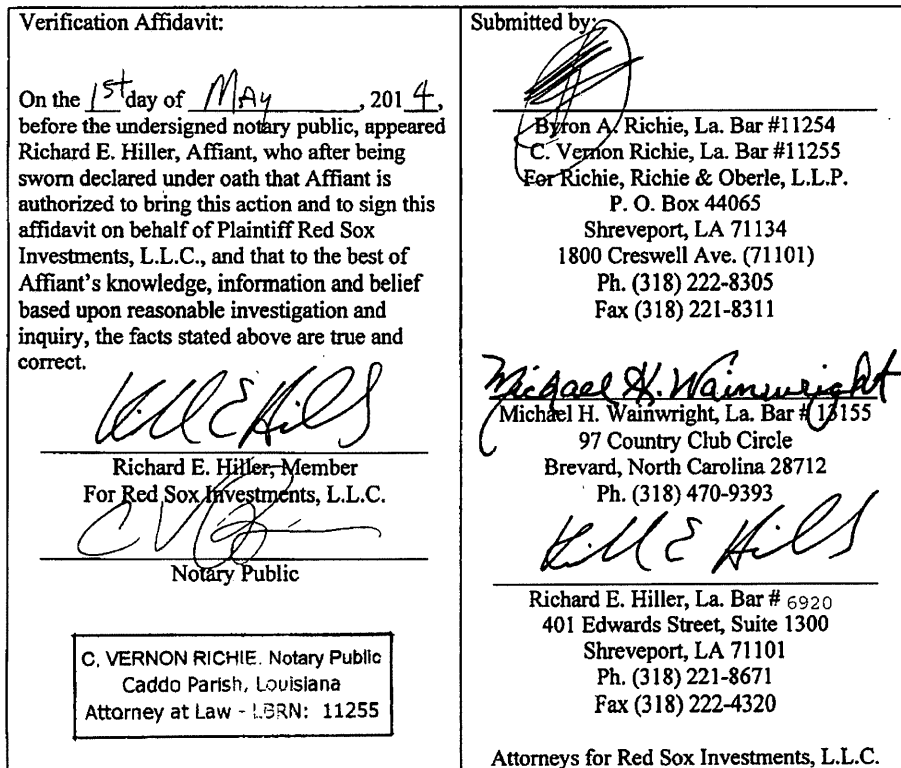 Verification Affidavit:
On the 1st day of May, 2014,
before the undersigned notary public, appeared
Richard E. Hiller, Affiant, who after being
sworn declared under oath that Affiant is
authorized to bring this action and to sign this
affidavit on behalf of Plaintiff Red Sox
Investments, L.L.C., and that to the best of
Affiant's knowledge, information and belief
based upon reasonable investigation and
inquiry, the facts stated above are true and
correct.
Richard E. Hiller, Member
For Red Sox Investments, L.L.C.
Notary Public
C. VERNON RICHIE. Notary Public
Caddo Parish, Louisiana
Attorney at Law - LBRN: 11255
Submitted by:
Byron A. Richie, La. Bar #11254
C. Vernon Richie, La. Bar #11255
For Richie, Richie & Oberle, L.L.P.
P. O. Box 44065
Shreveport, LA 71134
1800 Creswell Ave. (71101)
Ph. (318) 222-8305
Fax (318) 221-8311
Michael H. Wainwright
Michael H. Wainwright, La. Bar # 13155
97 Country Club Circle
Brevard, North Carolina 28712
Ph. (318) 470-9393
Richard E. Hiller, La. Bar # 6920
401 Edwards Street, Suite 1300
Shreveport, LA 71101
Ph. (318) 221-8671
Fax (318) 222-4320
Attorneys for Red Sox Investments, L.L.C.